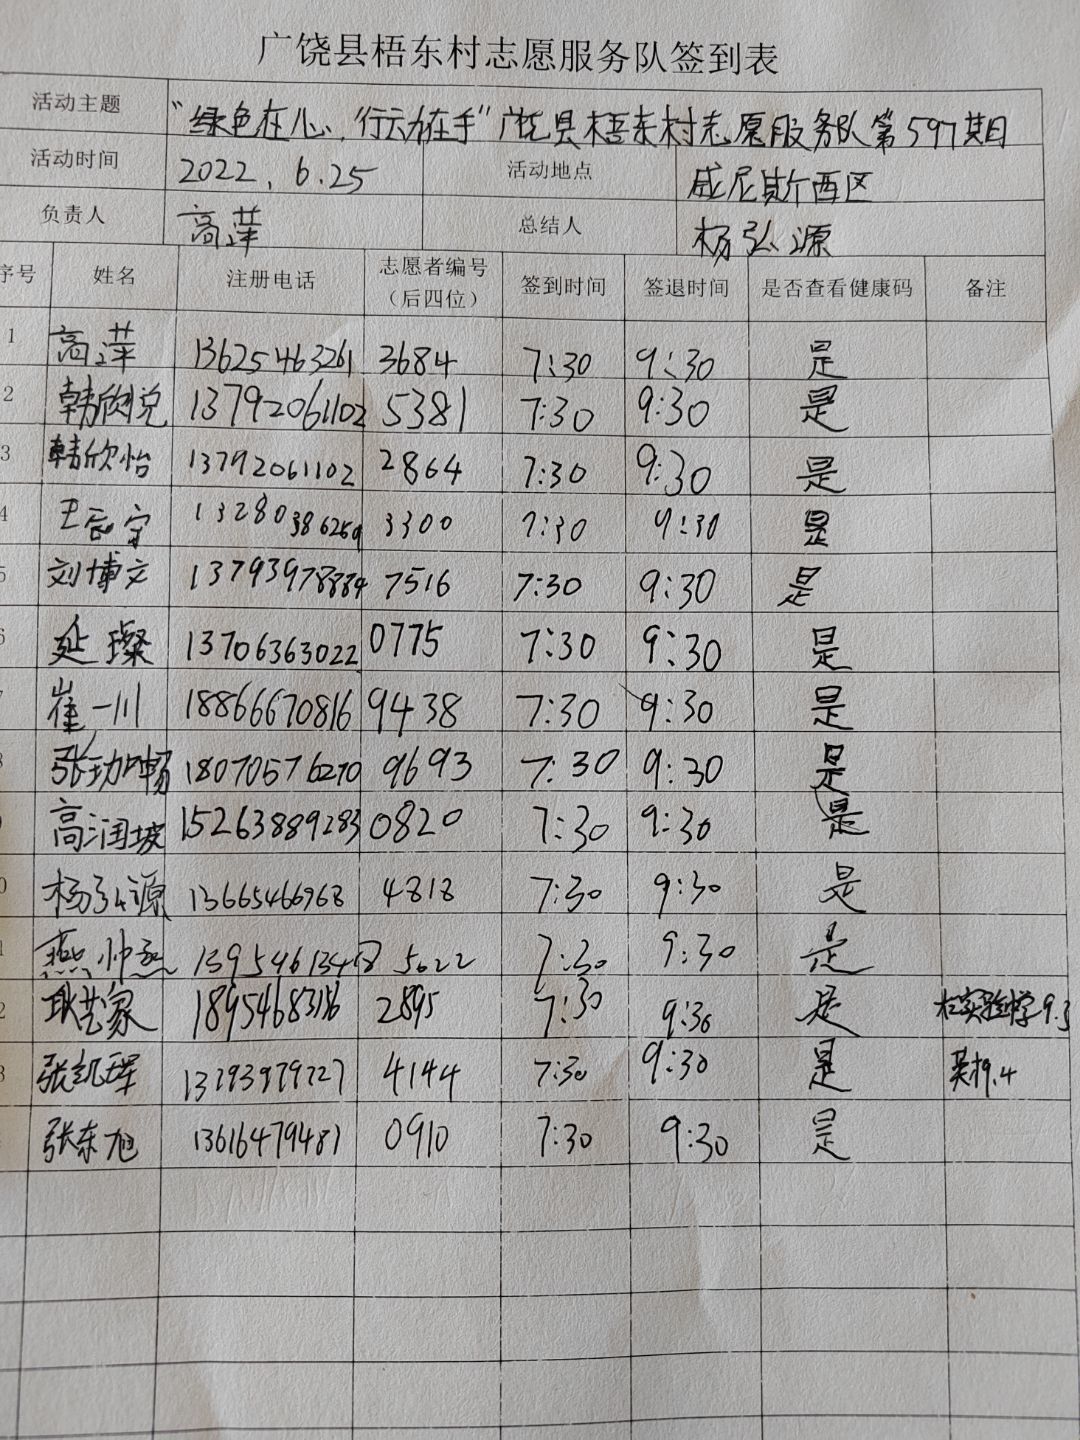 广饶县梧东村志愿服务队签到表
活动主题 “绿色在心，行动在手”广饶县梧东村志愿服务队第597期
活动时间 2022.6.25 活动地点 威尼斯西区
负责人 高萍 总结人 杨弘源
序号 姓名 注册电话 志愿者编号（后四位） 签到时间 签退时间 是否查看健康码 备注
1 高萍 13625463261 3684 7:30 9:30 是
2 韩欣悦 13792061102 5381 7:30 9:30 是
3 韩欣怡 13792061102 2864 7:30 9:30 是
4 王宁 13280386259 3300 7:30 9:30 是
5 刘博文 13793978884 7516 7:30 9:30 是
6 延璨 13706363022 0775 7:30 9:30 是
7 崔一川 18866670816 9438 7:30 9:30 是
张畅 18070576270 9693 7:30 9:30 是
高润坡 15263889283 0820 7:30 9:30 是
0 杨弘源 13665466968 4818 7:30 9:30 是
1 燕帅 5022 7:30 9:30 是
2 耿艺家 18954683116 2895 7:30 9:30 是 9.3
3 张凯珲 13793979727 4144 7:30 9:30 是 英才9.4
张东旭 13616479481 0910 7:30 9:30 是